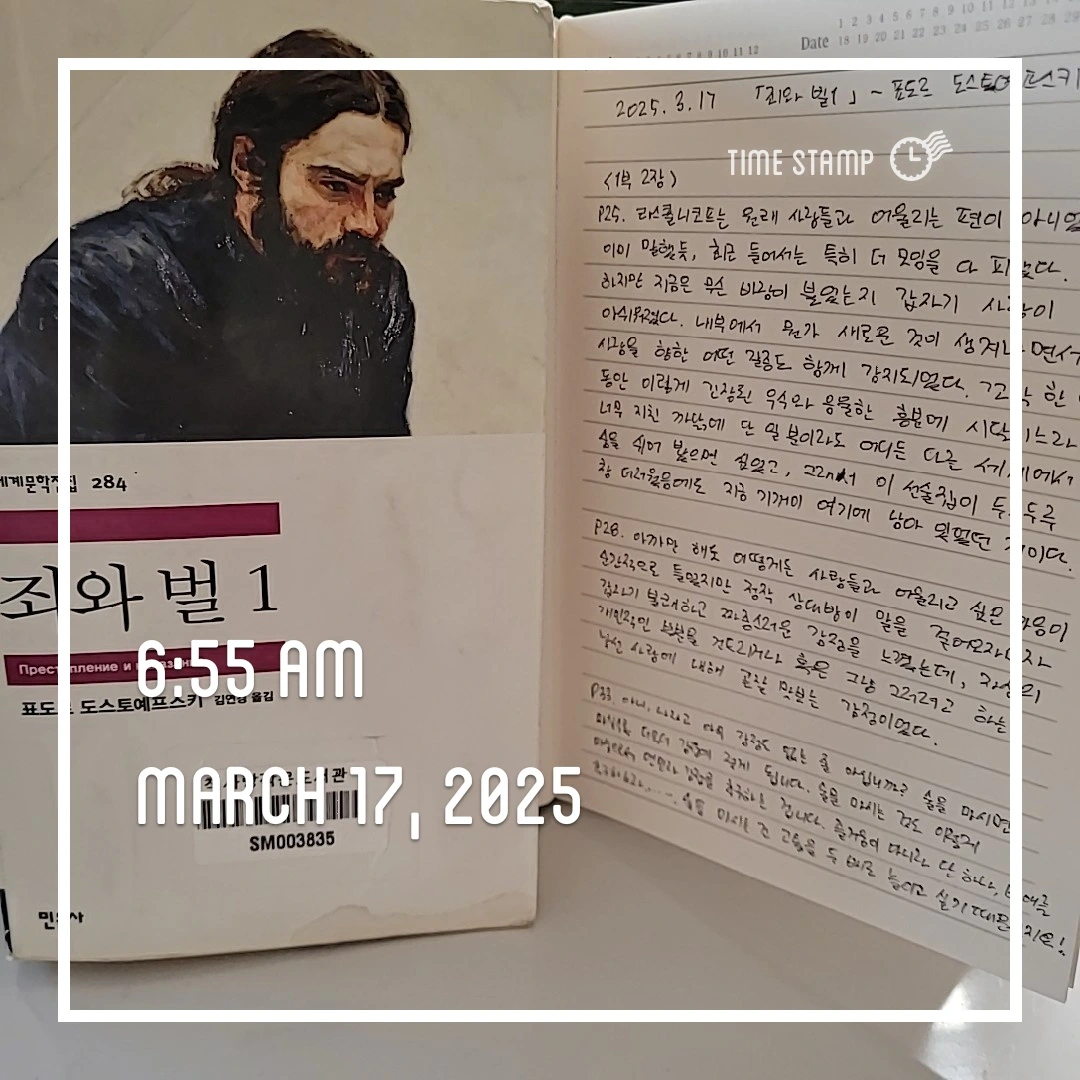 세계문학전집 284
죄와 벌 1
Преступление и наказание
표도르 도스토예프스키 김연경 옮김
SM003835
민음사
TIME STAMP
6:55 AM
MARCH 17, 2025
1 2 3 4 5 6 7 8 9 10 11 12 13 14
7 8 9 10 11 12 Date 18 19 20 21 22 23 24 25 26 27 28 29
2025. 3. 17 「죄와 벌1」 ~ 표도르 도스토예프스키
<1부 2장>
P25. 라스콜니코프는 원래 사람들과 어울리는 편이 아니었
이미 말했듯, 최근 들어서는 특히 더 모임을 다 피했다.
하지만 지금은 무슨 바람이 불었는지 갑자기 사람이
아쉬워졌다. 내부에서 뭔가 새로운 것이 생겨나면서
사람을 향한 어떤 갈증도 함께 감지되었다. 꼬박 한
동안 이렇게 긴장된 우수와 음울한 흥분에 시달리느라
너무 지친 까닭에 단 일 분이라도 어디든 다른 세계에서
숨을 쉬어 봤으면 싶었고, 그래서 이 선술집이
참 더러웠음에도 지금 기꺼이 여기에 남아 있었던 것이다.
P28. 아까만 해도 어떻게든 사람들과 어울리고 싶은 마음이
순간적으로 들었지만 정작 상대방이 말을 걸어오자마자
갑자기 불쾌하고 짜증스러운 감정을 느꼈는데, 자신의
개인적인 부분을 건드리거나 혹은 그냥 그러려고 하는
낯선 사람에 대해 곧잘 맛보는 감정이었다.
P33. 아니, 나라고 아무 감정도 없는 줄 아십니까? 술을 마시면
마실수록 더더욱 강하게 느끼게 됩니다. 술을 마시는 것도 이렇게
마시면서 연민과 감정을 추구하는 겁니다. 즐거움이 아니라 단 하나, 비애를
술을 마시는 건 고통을 두 배로 늘리고 싶기 때문이지요!